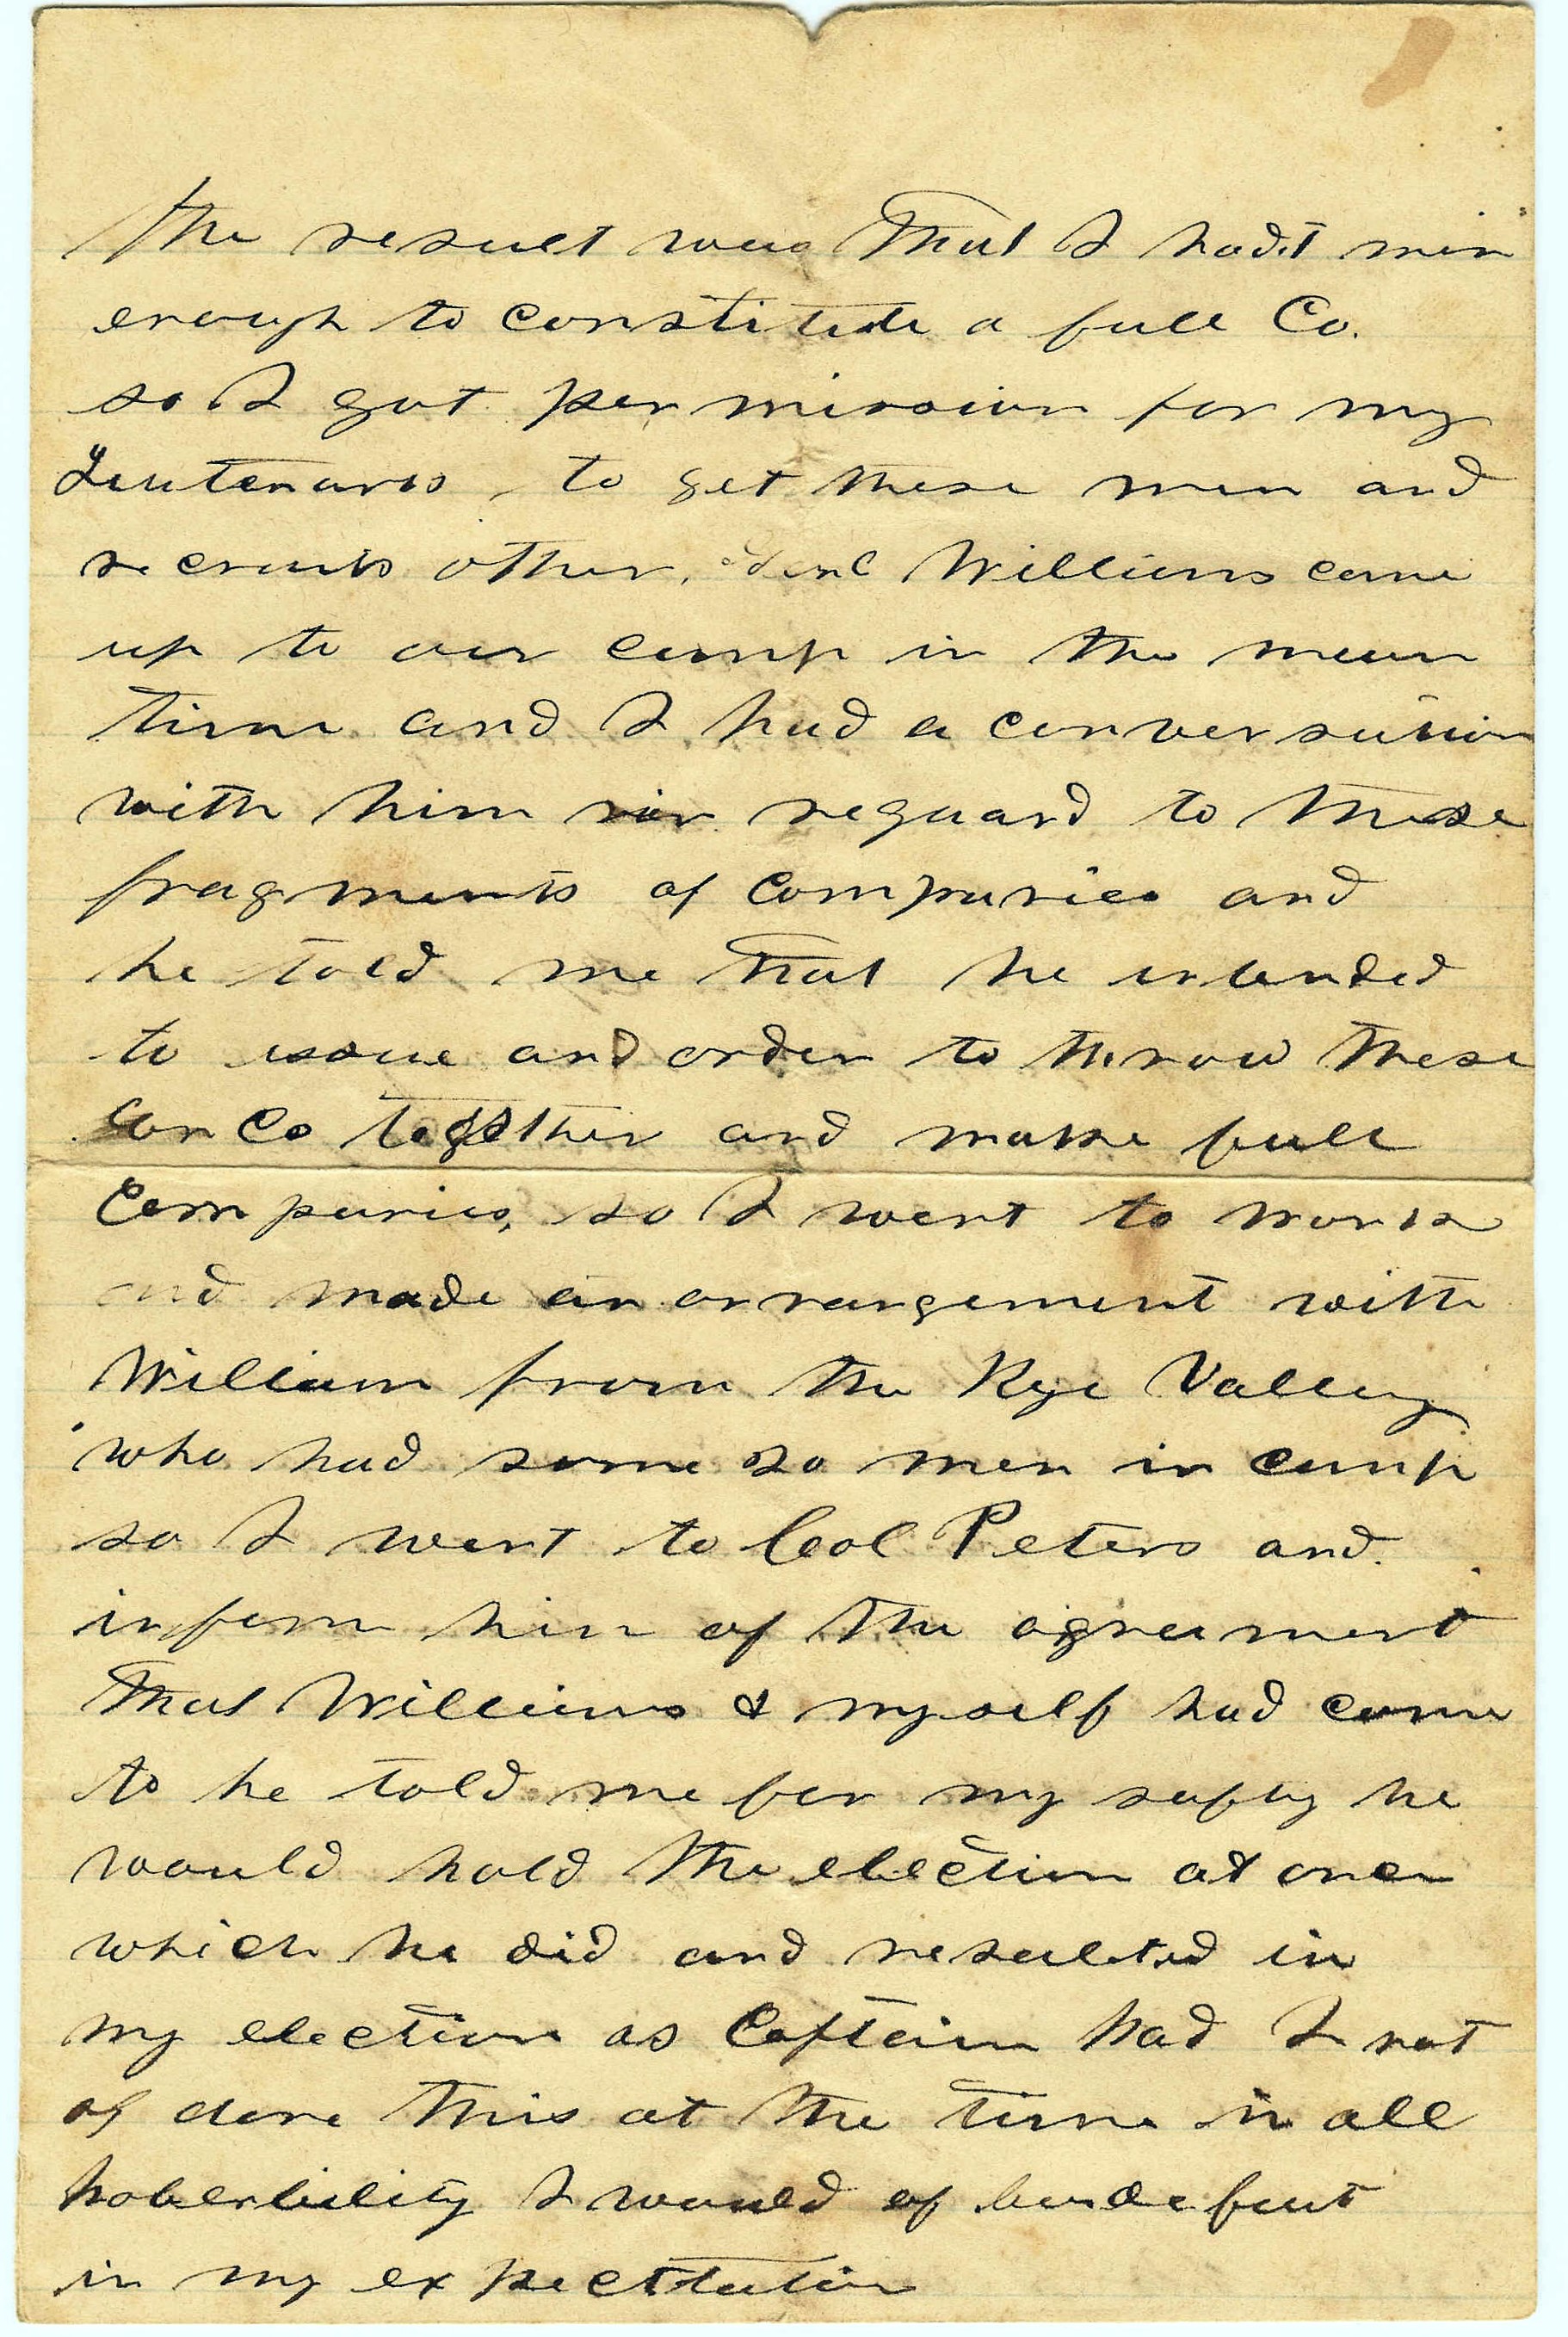 The result was That I hadt men
enough to constitute a full Co.
so I got permission for my
Leutenants to get these men and
recruits other, Genl Williams came
up to our camp in the mean
time and I had a conversation
with him in reguard to these
fragments of Companies and
he told me that he intended
to issue and order to throw these
Co together and make full
Companies, so I went to work
and made an arrangement with
William from the Rye Valley
who had some 20 men in camp
so I went to Col Peters and
inform him of the agreement
that Williams & myself had come
to he told me for my safty he
would hold the election at once
which he did and resulted in
my election as Captain had I not
of done this at the time in all
I would of been defeat
in my expectation